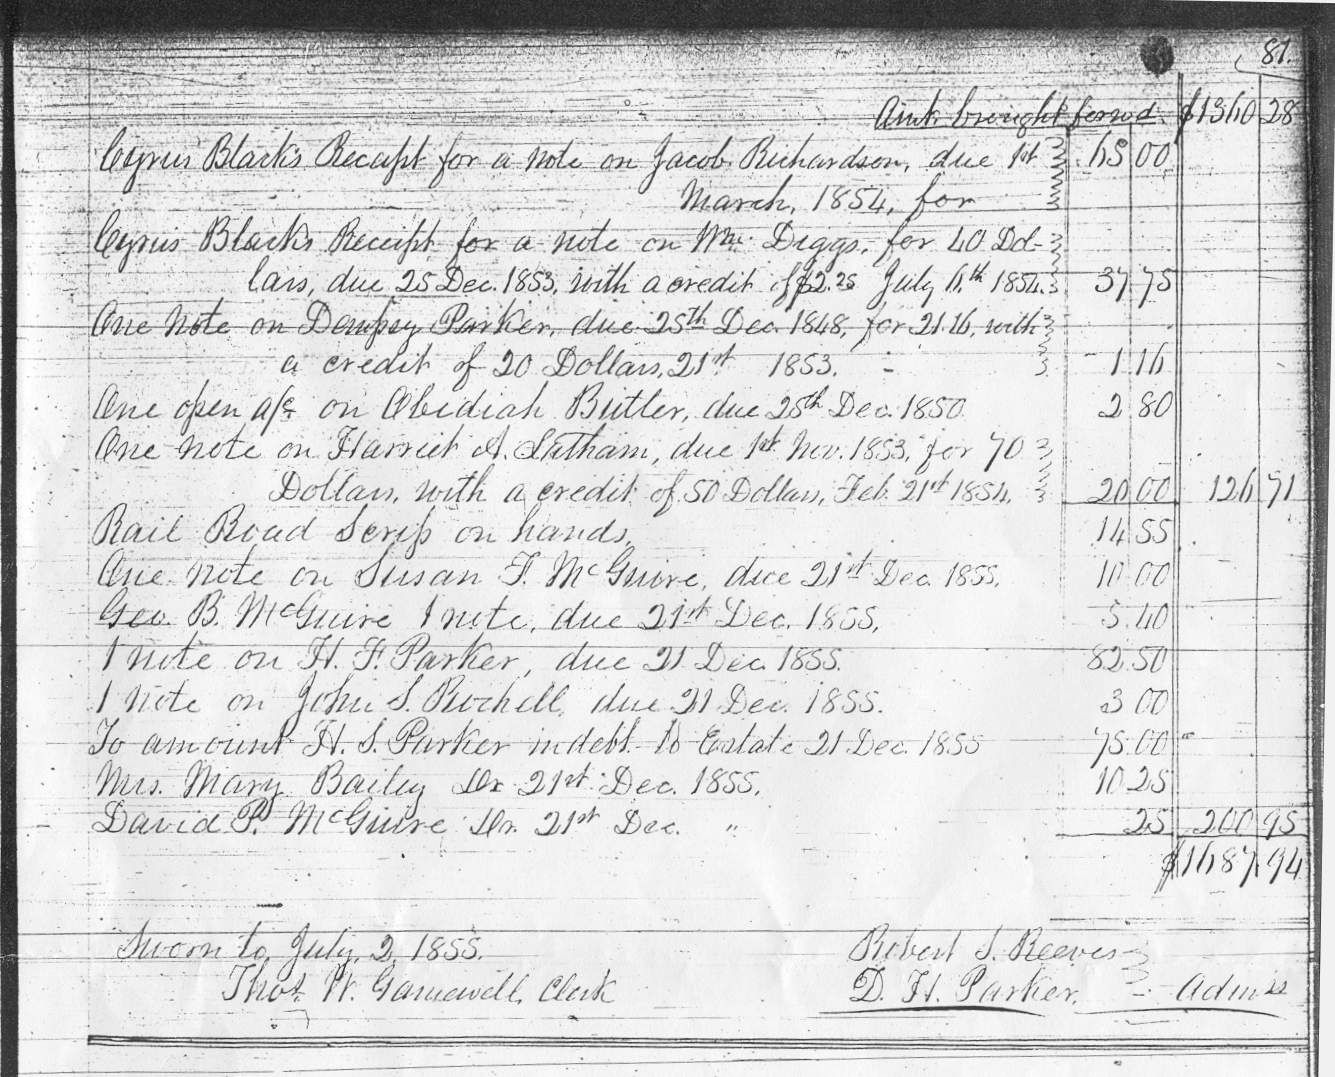 81.
Amt. brought forwd. $1360 28
Cyrus Black's Receipt for a note on Jacob Richardson, due 1st 65 00
March, 1854, for
Cyrus Black's Receipt for a note on Wm. Diggs, for 40 Dol-
lars, due 25 Dec. 1853, with a credit of $2.25 July 6th 1854. 37 75
One note on Dempsy Parker, due 25th Dec. 1848, for 21.16, with
a credit of 20 Dollars, 21st 1853. - 1 16
One open a/c on Obediah Butler, due 25th Dec. 1850 2 80
One note on Harriet A. Latham, due 1st Nov. 1853, for 70
Dollars, with a credit of 50 Dollars, Feb. 21st 1854, 20 00 126 71
Rail Road Scrip on hands, 14 55
One note on Susan F. McGuire, due 21st Dec. 1855, 10 00
Geo. B. McGuire 1 note, due 21st Dec. 1855, 5 40
1 note on H. F. Parker, due 21 Dec. 1855. 82 50
1 note on John S. Rochell, due 21 Dec. 1855. 3 00
To amount H. S. Parker indebt. to Estate 21 Dec. 1855 75 00
Mrs. Mary Bailey Dr. 21st Dec. 1855, 10 25
David P. McGuire Dr. 21st Dec. " 25 200 95
$1687 94
Sworn to, July, 2, 1855. Robert S. Reeves
Thos. W. Gamewell, Clerk D. H. Parker, - Admrs